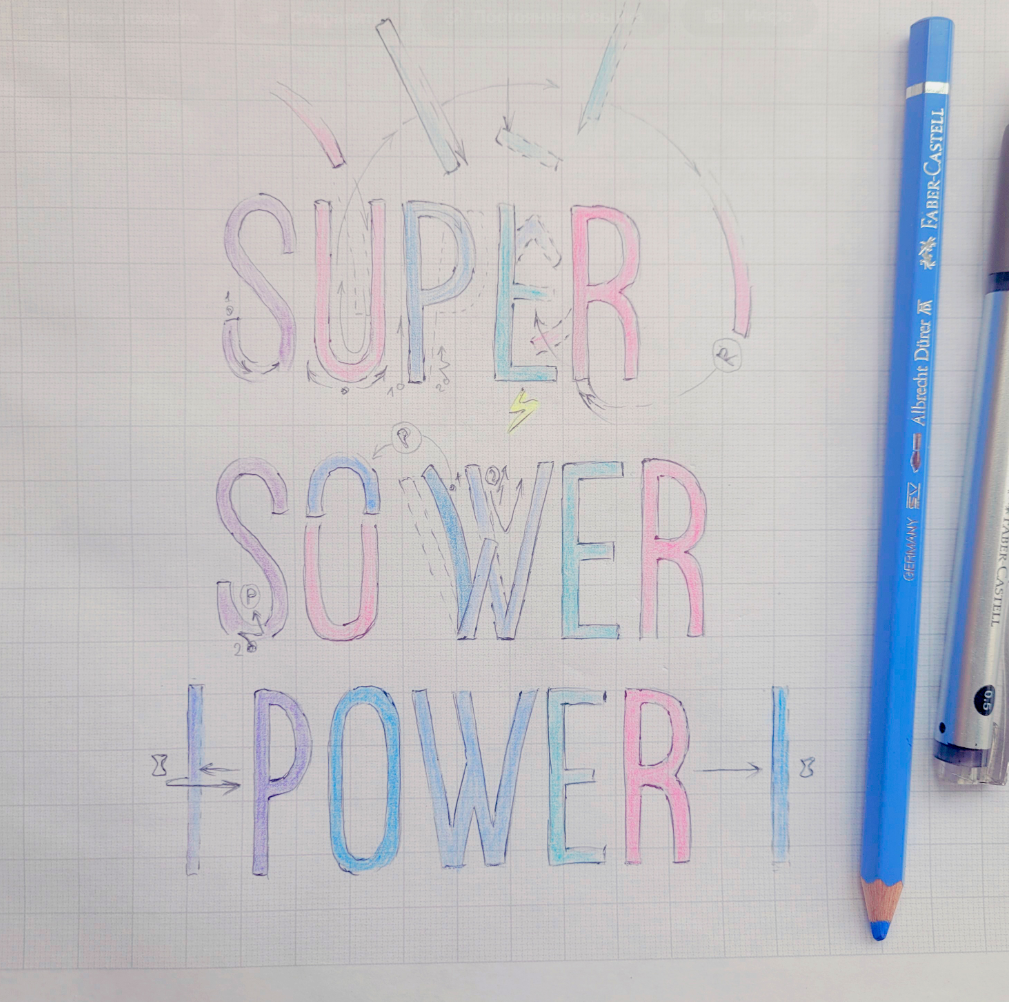 SUPER
R
1
2
SOWER
P
2
P
2
POWER
FABER-CASTELL
Albrecht Dürer
GERMANY
FABER CASTELL
0.5